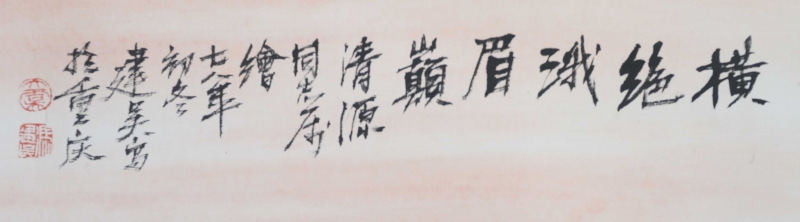 横絶峨眉巔
清源
同志属
繪
七八年
初冬
建吴写
於重庆